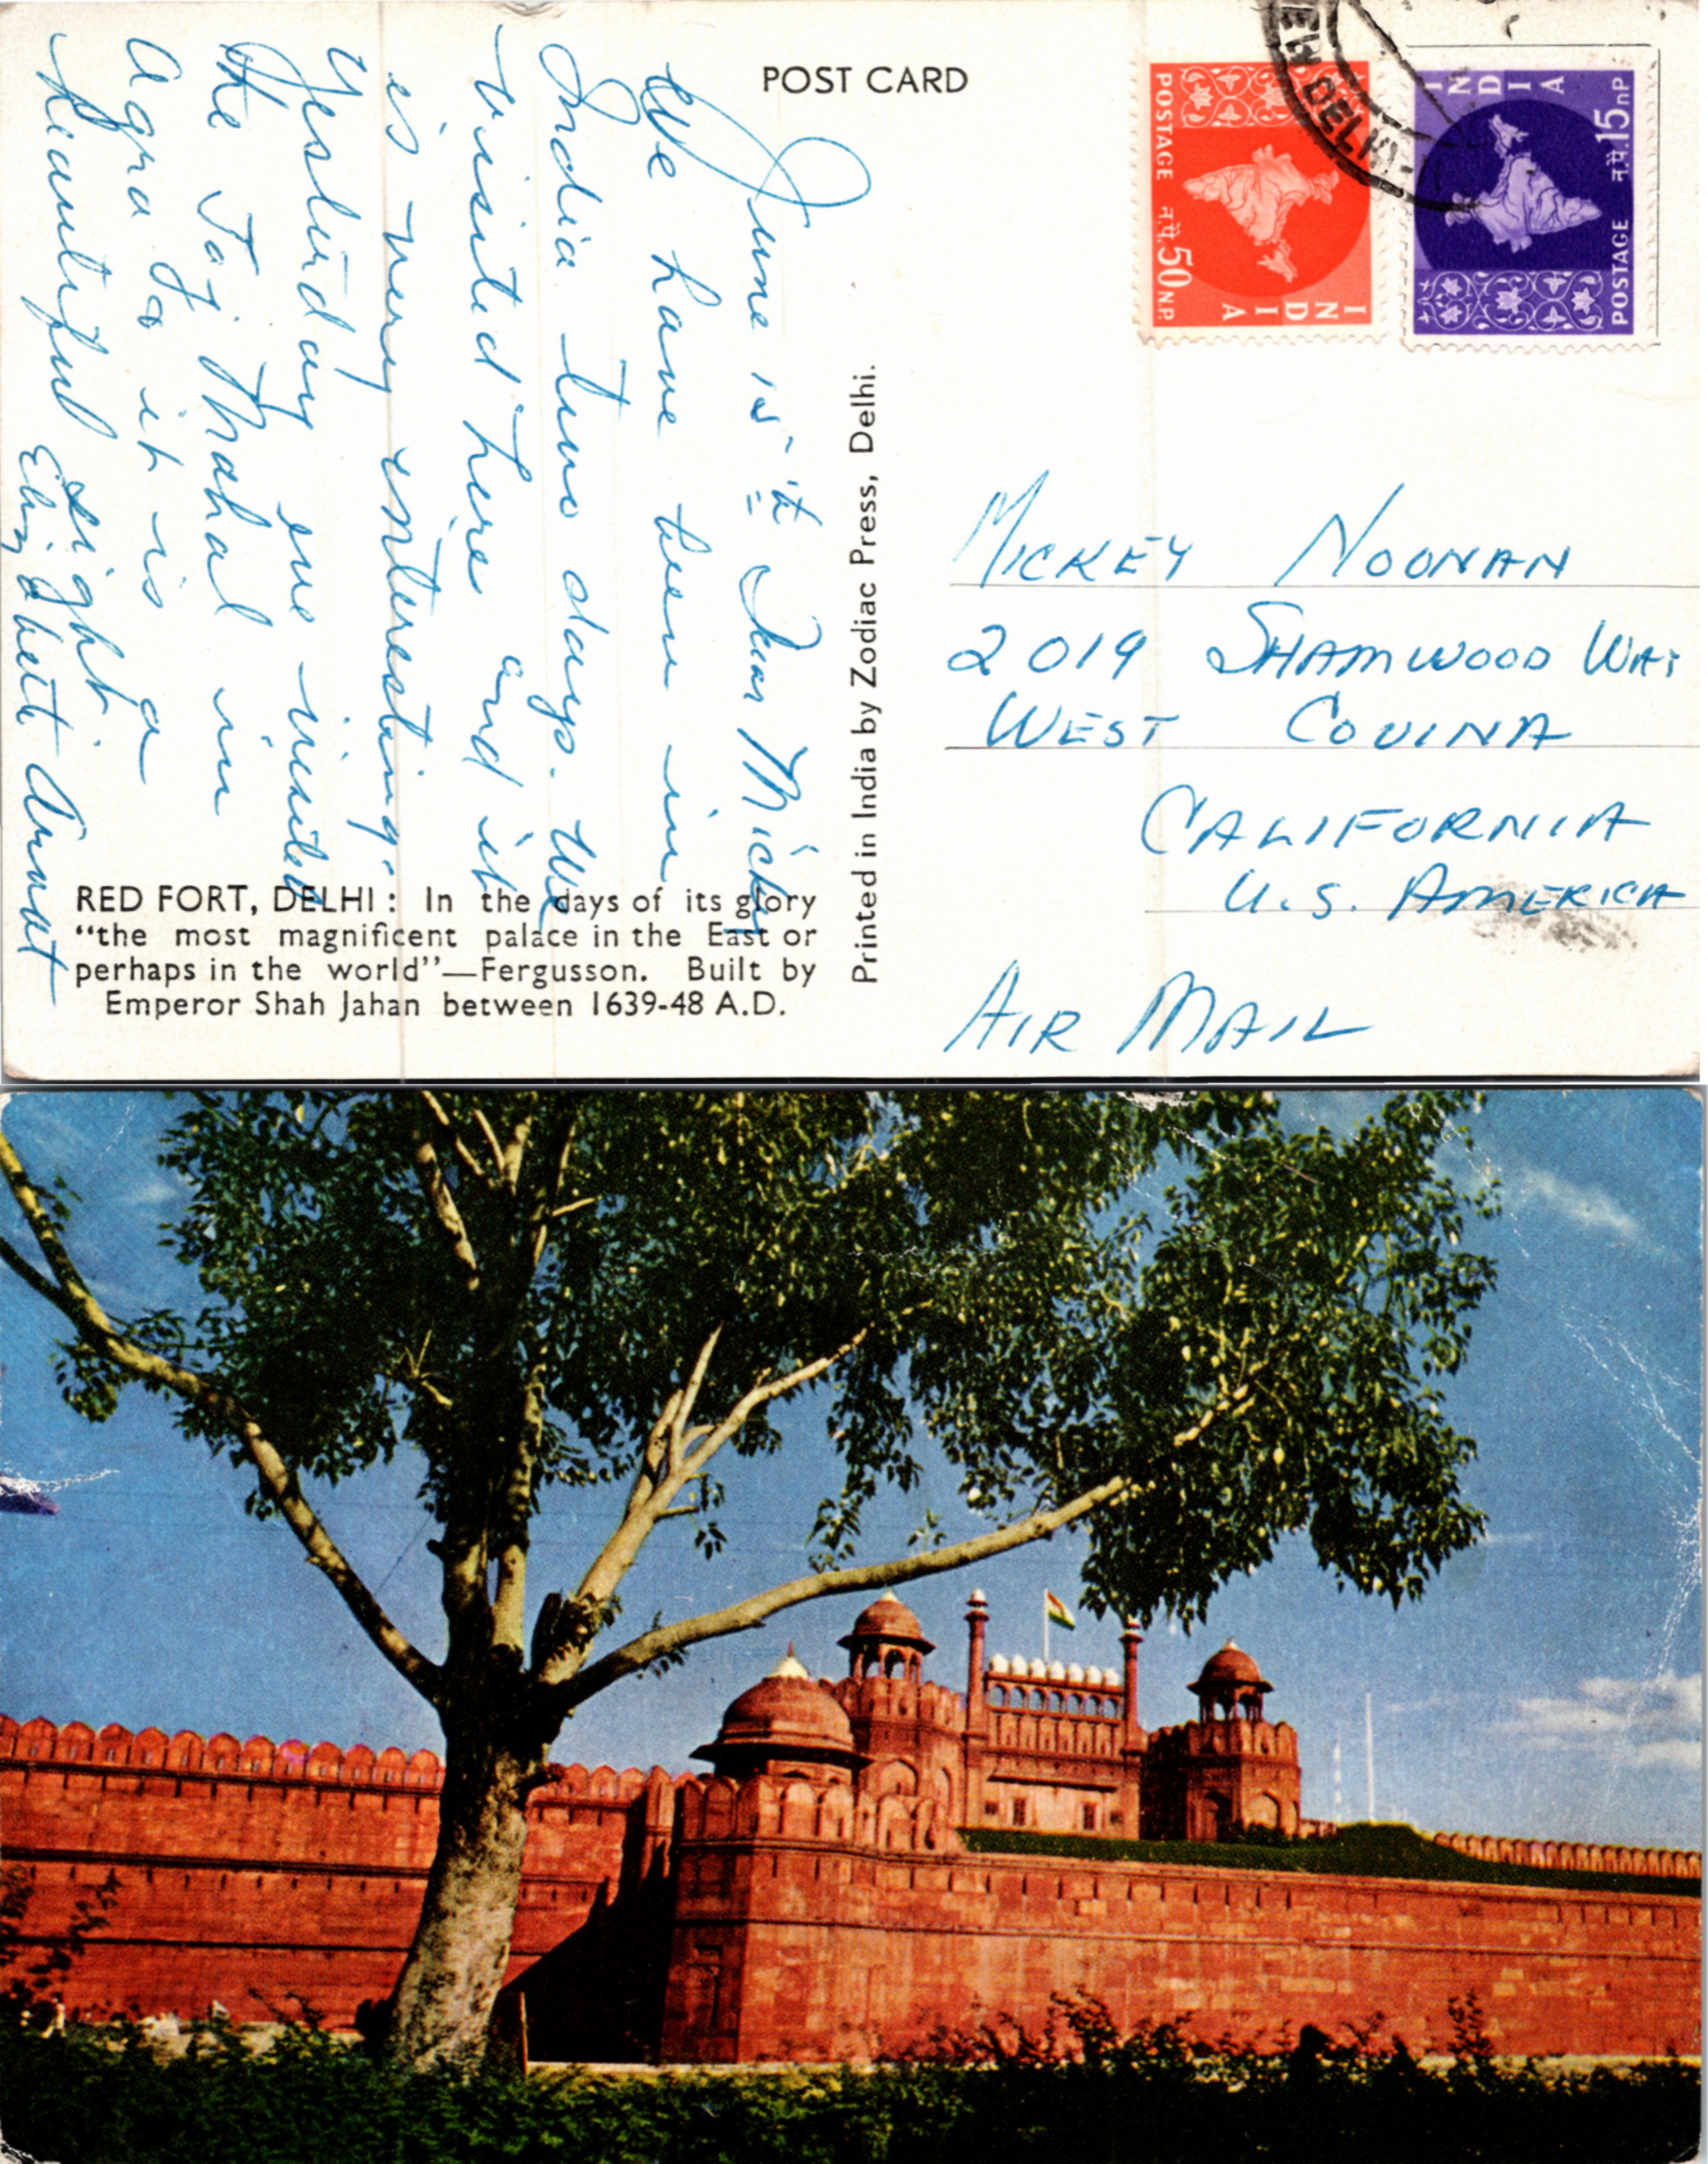 POST CARD
June 15th Dear Micky
We have been in
India two days. We
visited here and it
is very interesting.
Yesterday we visited
the Taj Mahal in
Agra & it is a
beautiful sight.
Aunt
RED FORT, DELHI : In the days of its glory
“the most magnificent palace in the East or
perhaps in the world”—Fergusson. Built by
Emperor Shah Jahan between 1639-48 A.D.
Printed in India by Zodiac Press, Delhi.
INDIA
POSTAGE न.पै. 50 N.P.
INDIA
POSTAGE न.पै. 15 nP
EW DELHI
MICKEY NOONAN
2019 SHAMWOOD WAY
WEST COVINA
CALIFORNIA
U.S. AMERICA
AIR MAIL